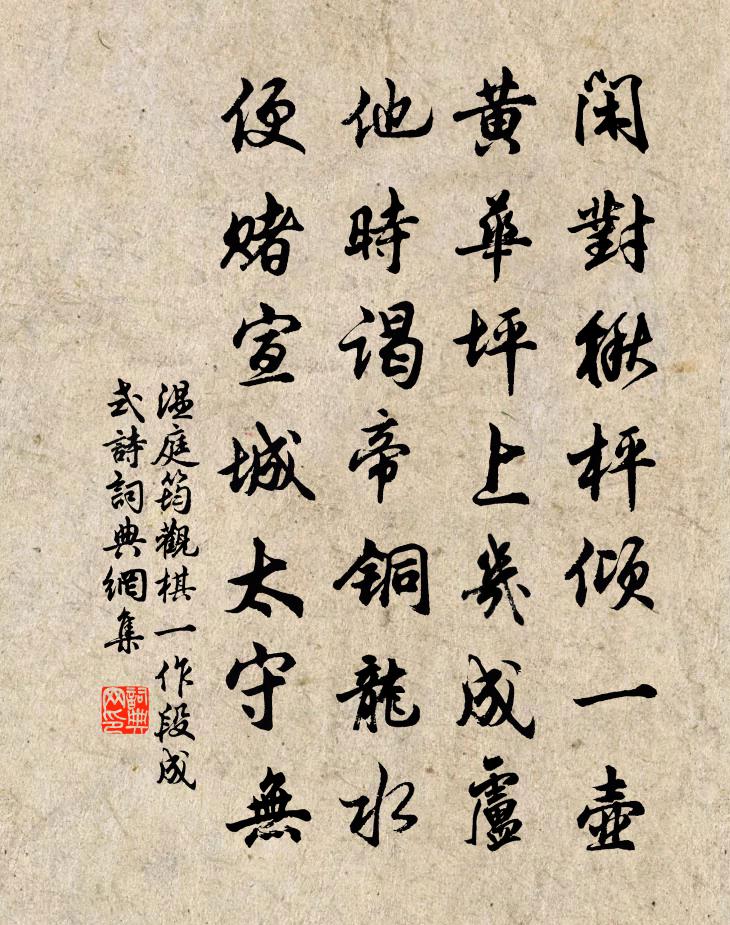 閑對楸枰傾一壺
黃華坪上幾成盧
他時謁帝銅龍水
便賭宣城太守無
温庭筠觀棋一作段成
式詩詞典網集
詞典
网印